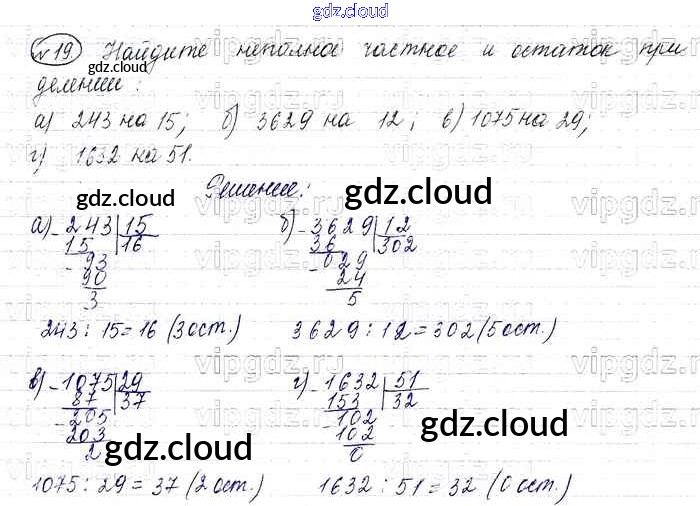 gdz.cloud
№19. Найдите неполное частное и остаток при
gdz.cloud
делении:
а) 243 на 15; б) 3629 на 12; в) 1075 на 29;
г) 1632 на 51.
Решение:
gdz.cloud gdz.cloud
а) - 243 | 15 б) - 3629 | 12
15 16 36 302
- 93 - 029
90 24
3 5
243 : 15 = 16 (3 ост.) 3629 : 12 = 302 (5 ост.)
в) - 1075 | 29 г) - 1632 | 51
87 37 153 32
- 205 - 102
203 102
2 0
gdz.cloud gdz.cloud
1075 : 29 = 37 (2 ост.) 1632 : 51 = 32 (0 ост.)